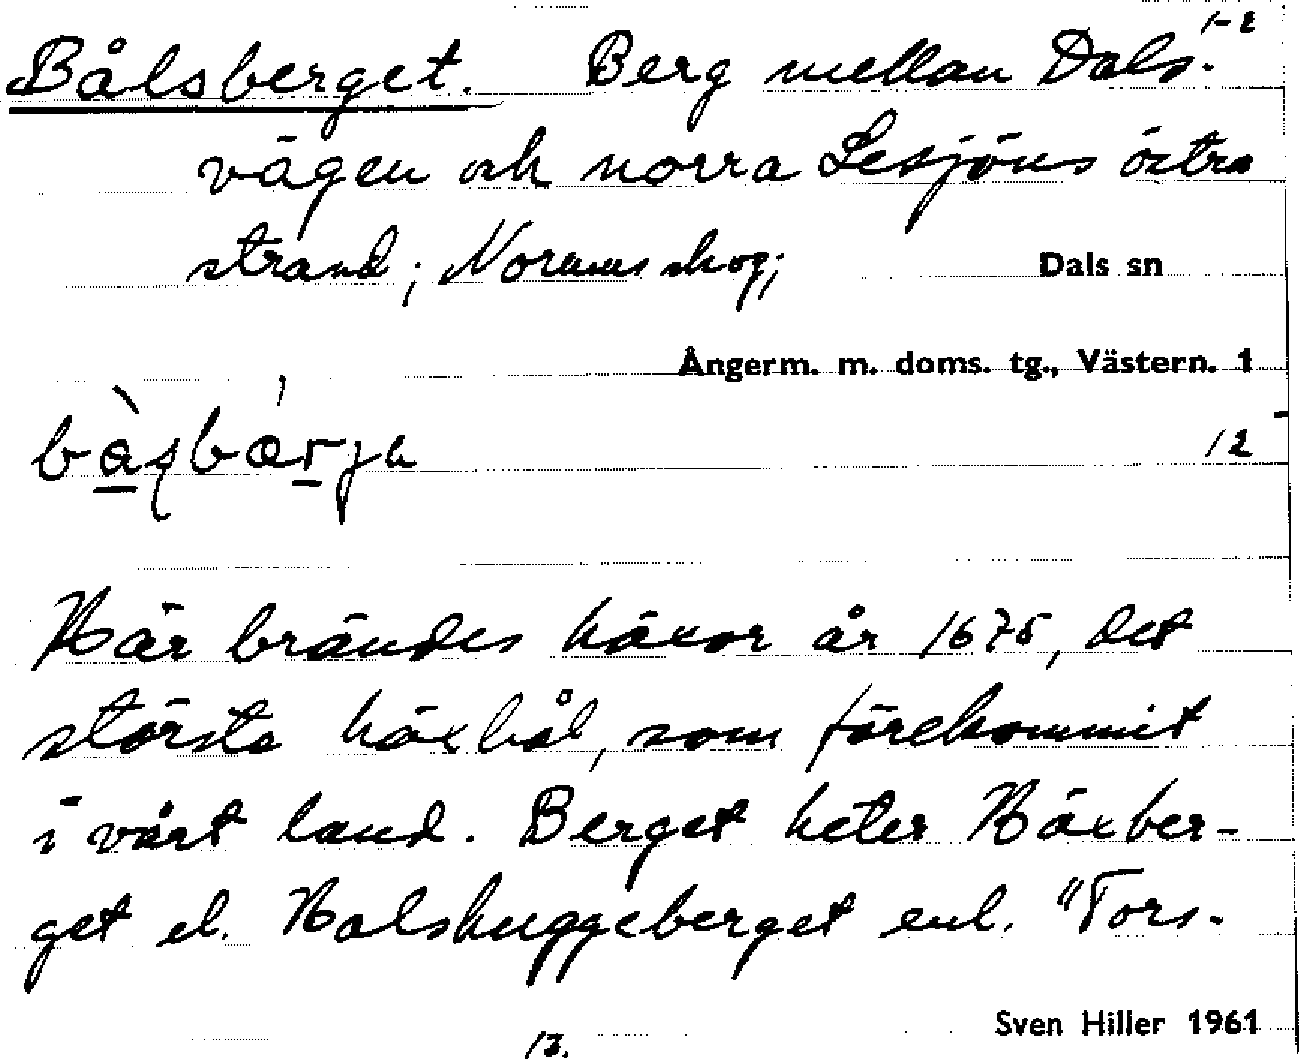 1-2
Bålsberget. Berg mellan Dals-
vägen och norra Lesjöns östra
strand; Noraskog;
Dals sn
Ångerm. m. doms. tg., Västern. 1
12
Här brändes häxor år 1675, det
största häxbål, som förekommit
i vårt land. Berget heter Häxber-
get el. Halshuggeberget enl. "Tors-
Sven Hiller 1961
13.